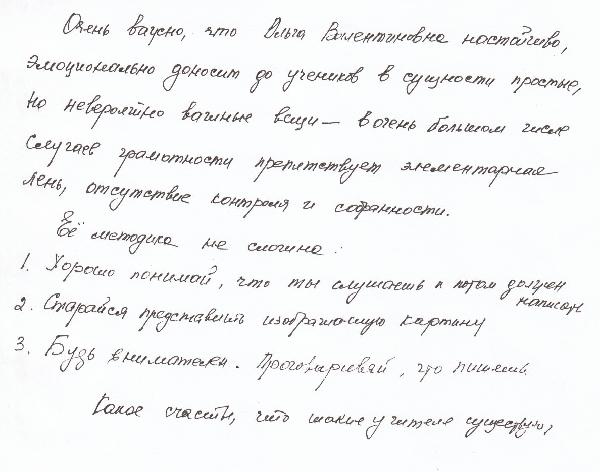 Очень важно, что Ольга Валентиновна настойчиво,
эмоционально доносит до учеников в сущности простые,
но невероятно важные вещи — в очень большом числе
случаев грамотности препятствует элементарная
лень, отсутствие контроля и собранности.
Её методика не сложна:
1. Хорошо понимай, что ты слушаешь и потом должен
написать
2. Старайся представить изображаемую картину
3. Будь внимателен. Проговаривай, что пишешь.
Какое счастье, что такие учителя существуют,